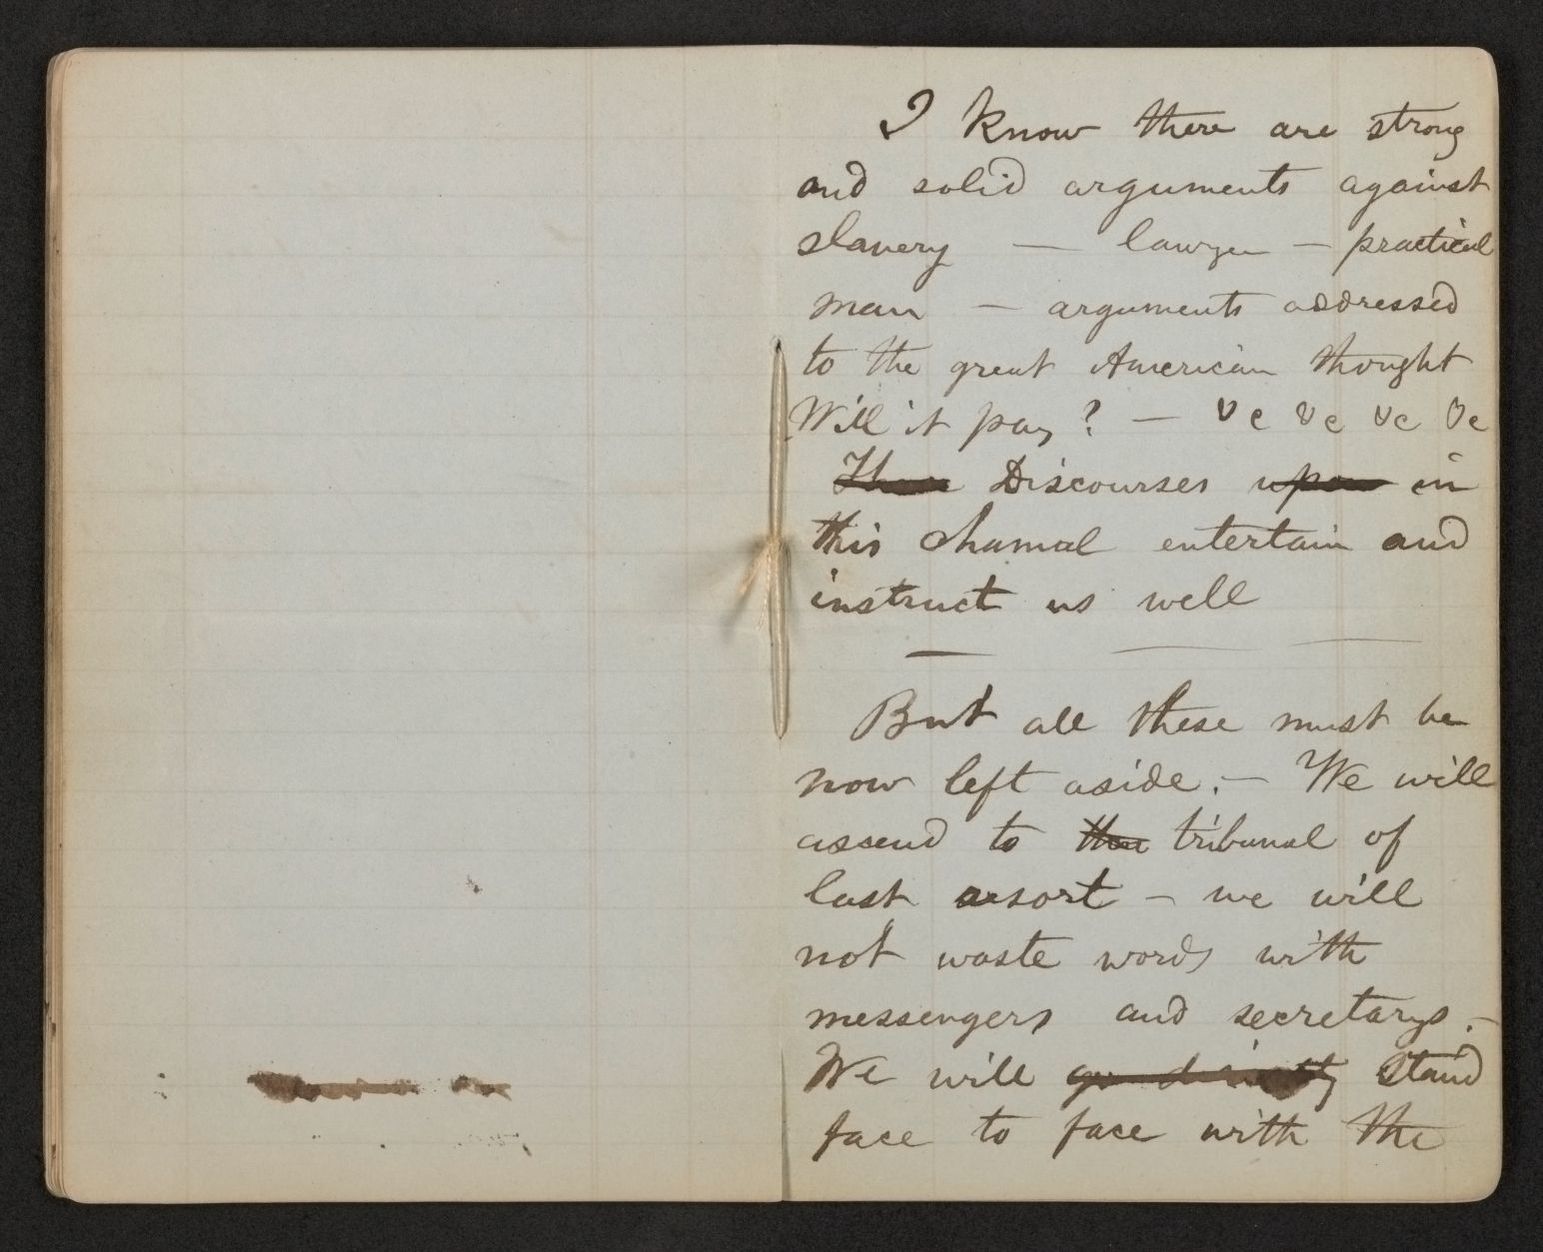 I know there are strong
and solid arguments against
slavery — lawyer — practical
man — arguments addressed
to the great American thought
Will it pay? — &c &c &c &c
Discourses upon in
this channel entertain and
instruct us well
But all these must be
now left aside. — We will
ascend to the tribunal of
last resort — we will
not waste words with
messengers and secretarys. —
We will go directly stand
face to face with the